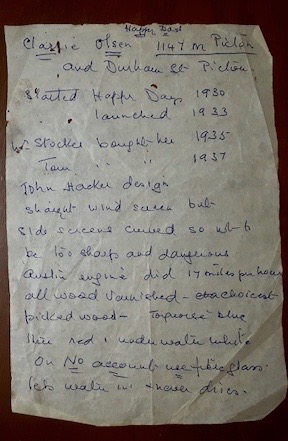 Happy Days
Classie Olsen 1147 M Picton
and Durham St Picton
Started Happy Days 1930
" launched 1933
Mr Stocker bought her 1935
Tom " " 1937
John Hacker design
straight wind screen but
side screens curved so not to
be too sharp and dangerous
Austin engine did 17 miles per hour
all wood varnished - choicest
picked wood - Torquoise blue
line red & under water white
On No account use fibre glass
lets water in & never dries.